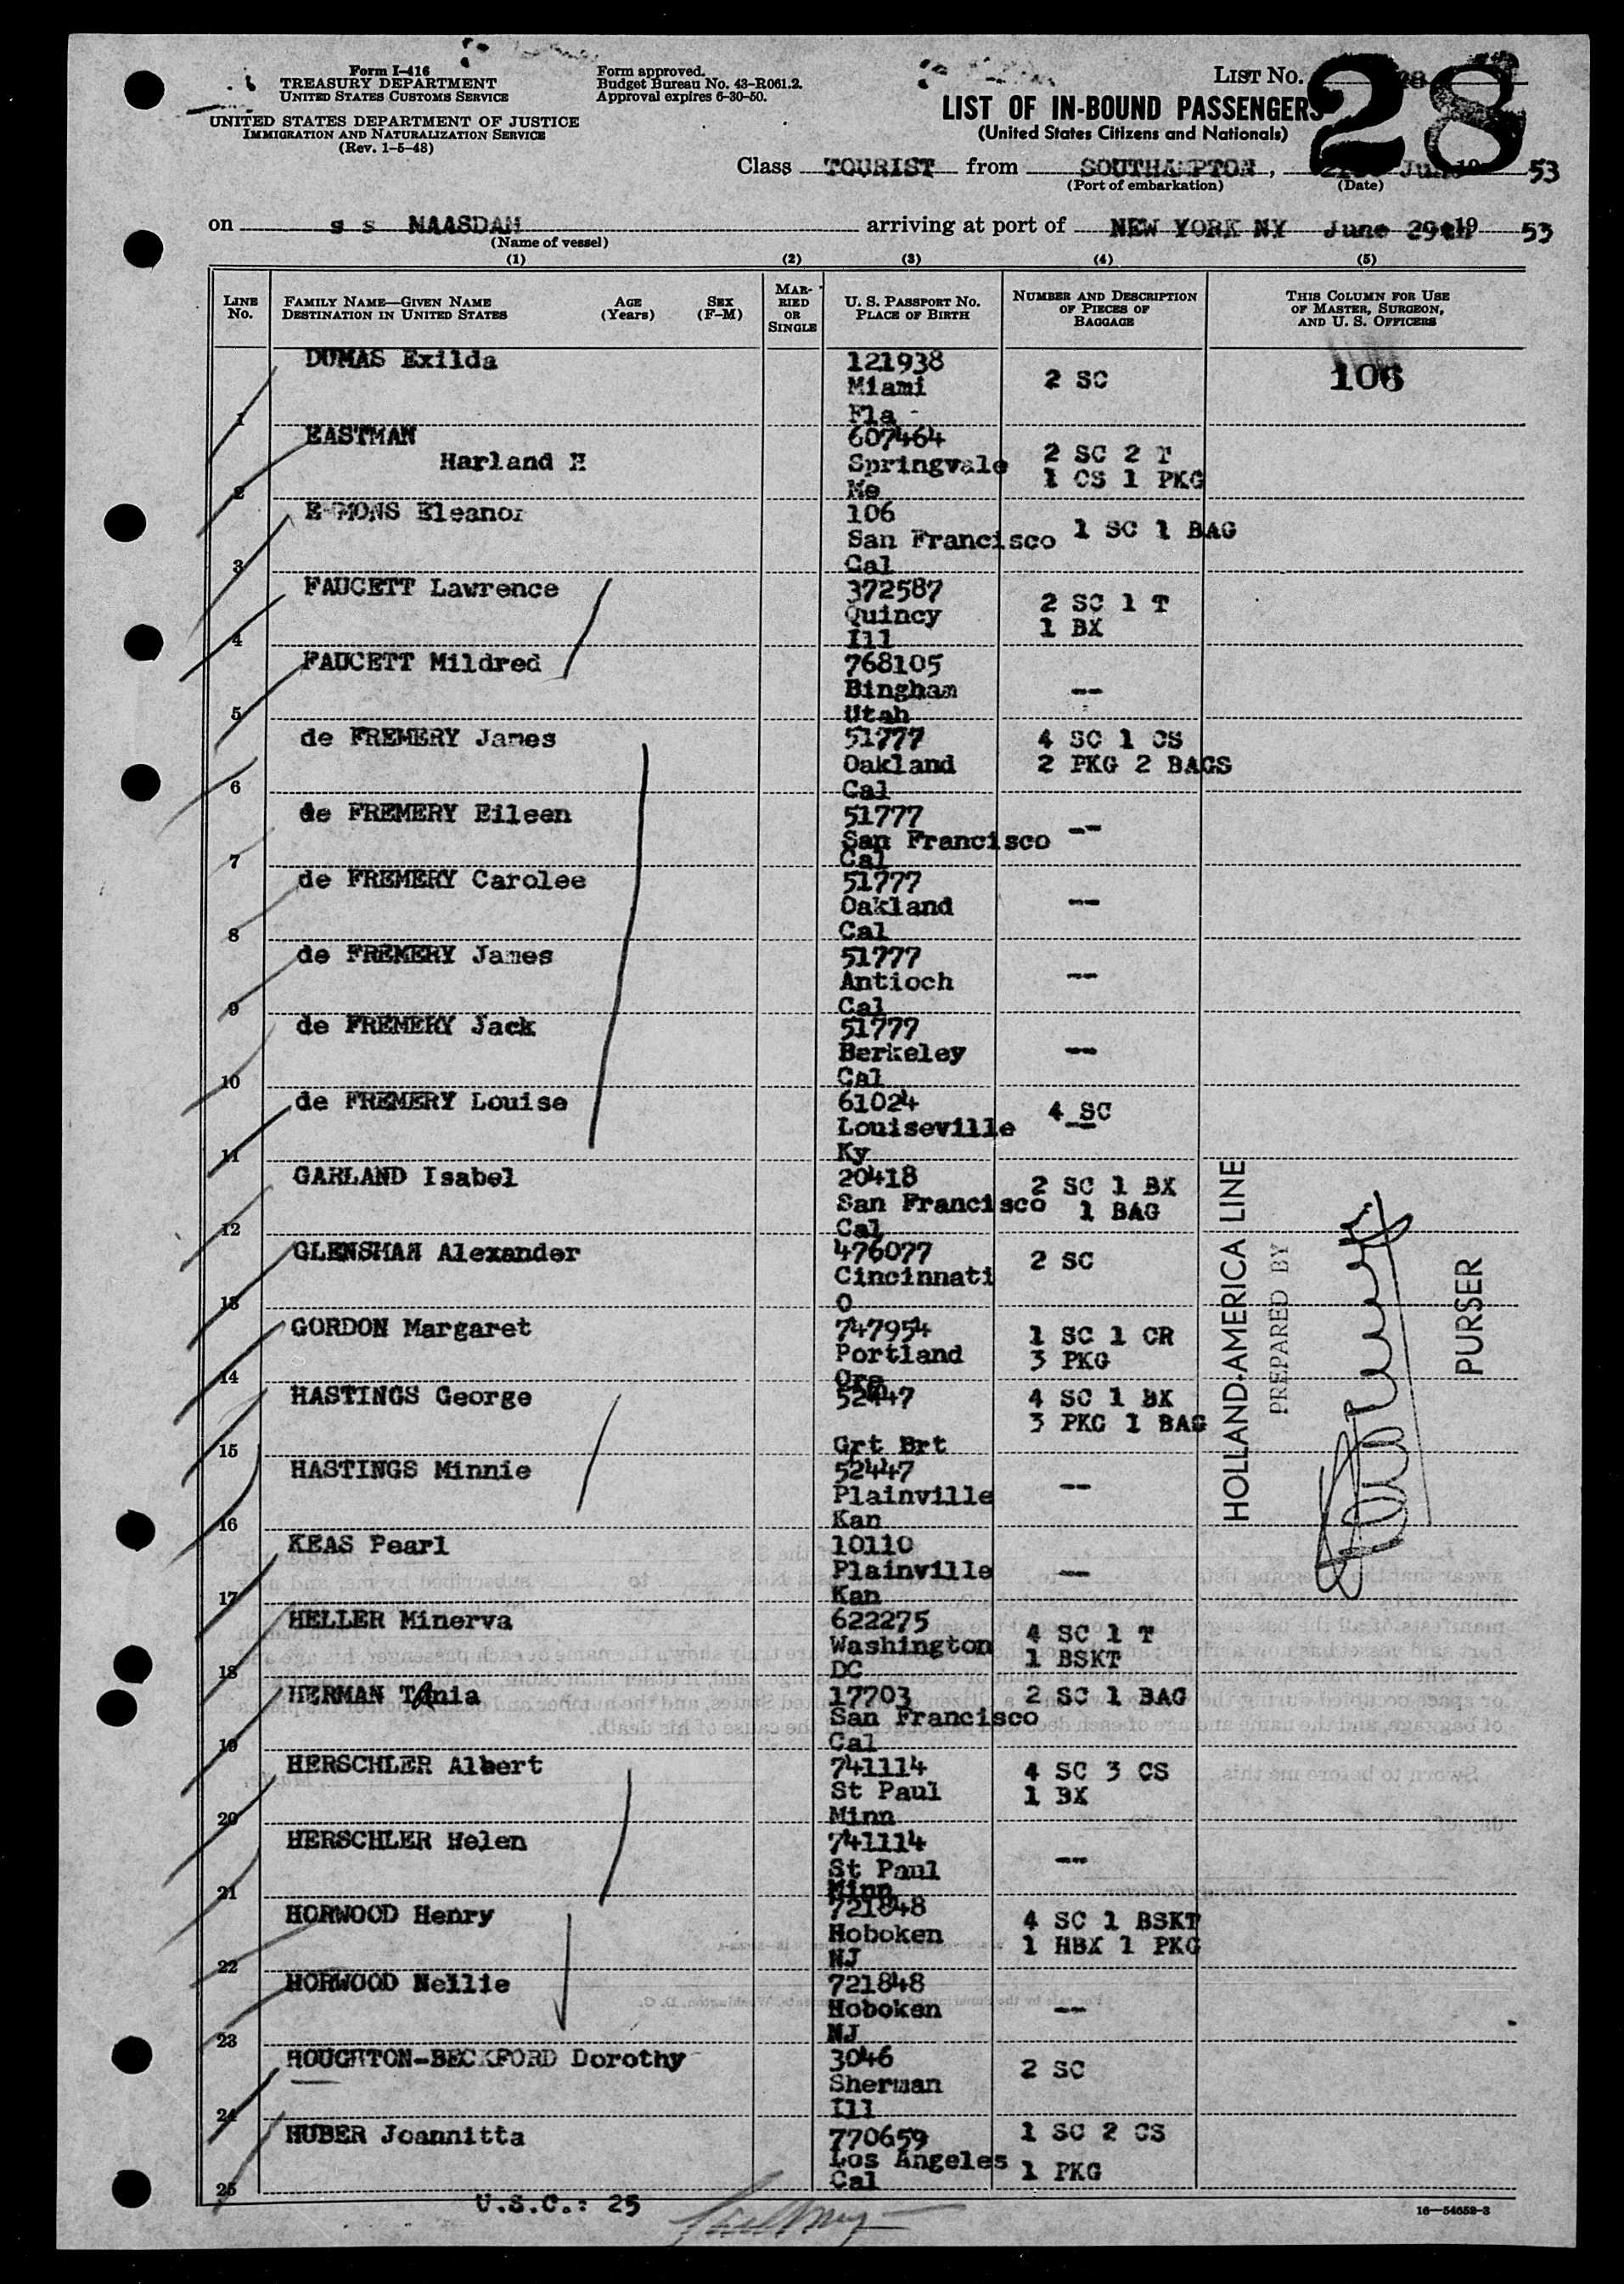 Form I-416
TREASURY DEPARTMENT
UNITED STATES CUSTOMS SERVICE
UNITED STATES DEPARTMENT OF JUSTICE
IMMIGRATION AND NATURALIZATION SERVICE
(Rev. 1-5-48)
Form approved.
Budget Bureau No. 43-R061.2.
Approval expires 6-30-50.
LIST No. 28
LIST OF IN-BOUND PASSENGERS
(United States Citizens and Nationals)
Class TOURIST from SOUTHAMPTON, 19 53
(Port of embarkation) (Date)
on s s MAASDAM arriving at port of NEW YORK NY June 29th 19 53
(Name of vessel)
(1) (2) (3) (4) (5)
LINE No. FAMILY NAME—GIVEN NAME DESTINATION IN UNITED STATES AGE (Years) SEX (F-M) MARRIED OR SINGLE U. S. PASSPORT NO. PLACE OF BIRTH NUMBER AND DESCRIPTION OF PIECES OF BAGGAGE THIS COLUMN FOR USE OF MASTER, SURGEON, AND U. S. OFFICERS
1 DUMAS Exilda 121938 Miami Fla 2 SC 106
2 EASTMAN Harland H 607464 Springvale Me 2 SC 2 T 1 CS 1 PKG
3 EMMONS Eleanor 106 San Francisco Cal 1 SC 1 BAG
4 FAUCETT Lawrence 372587 Quincy Ill 2 SC 1 T 1 BX
5 FAUCETT Mildred 768105 Bingham Utah --
6 de FREMERY James 51777 Oakland Cal 4 SC 1 CS 2 PKG 2 BAGS
7 de FREMERY Eileen 51777 San Francisco Cal --
8 de FREMERY Carolee 51777 Oakland Cal --
9 de FREMERY James 51777 Antioch Cal --
10 de FREMERY Jack 51777 Berkeley Cal --
11 de FREMERY Louise 61024 Louiseville Ky 4 SC
12 GARLAND Isabel 20418 San Francisco Cal 2 SC 1 BX 1 BAG
13 GLENSMAN Alexander 476077 Cincinnati O 2 SC
14 GORDON Margaret 747954 Portland Ore 1 SC 1 CR 3 PKG
15 HASTINGS George 52447 Grt Brt 4 SC 1 BX 3 PKG 1 BAG
16 HASTINGS Minnie 52447 Plainville Kan --
17 KEAS Pearl 10110 Plainville Kan --
18 HELLER Minerva 622275 Washington DC 4 SC 1 T 1 BSKT
19 HERMAN Tania 17703 San Francisco Cal 2 SC 1 BAG
20 HERSCHLER Albert 741114 St Paul Minn 4 SC 3 CS 1 BX
21 HERSCHLER Helen 741114 St Paul Minn --
22 HORWOOD Henry 721848 Hoboken NJ 4 SC 1 BSKT 1 HBX 1 PKG
23 HORWOOD Nellie 721848 Hoboken NJ --
24 HOUGHTON-BECKFORD Dorothy 3046 Sherman Ill 2 SC
25 HUBER Joannitta 770659 Los Angeles Cal 1 SC 2 CS 1 PKG
HOLLAND-AMERICA LINE
PREPARED BY
PURSER
U.S.C.: 25
16—54652-3